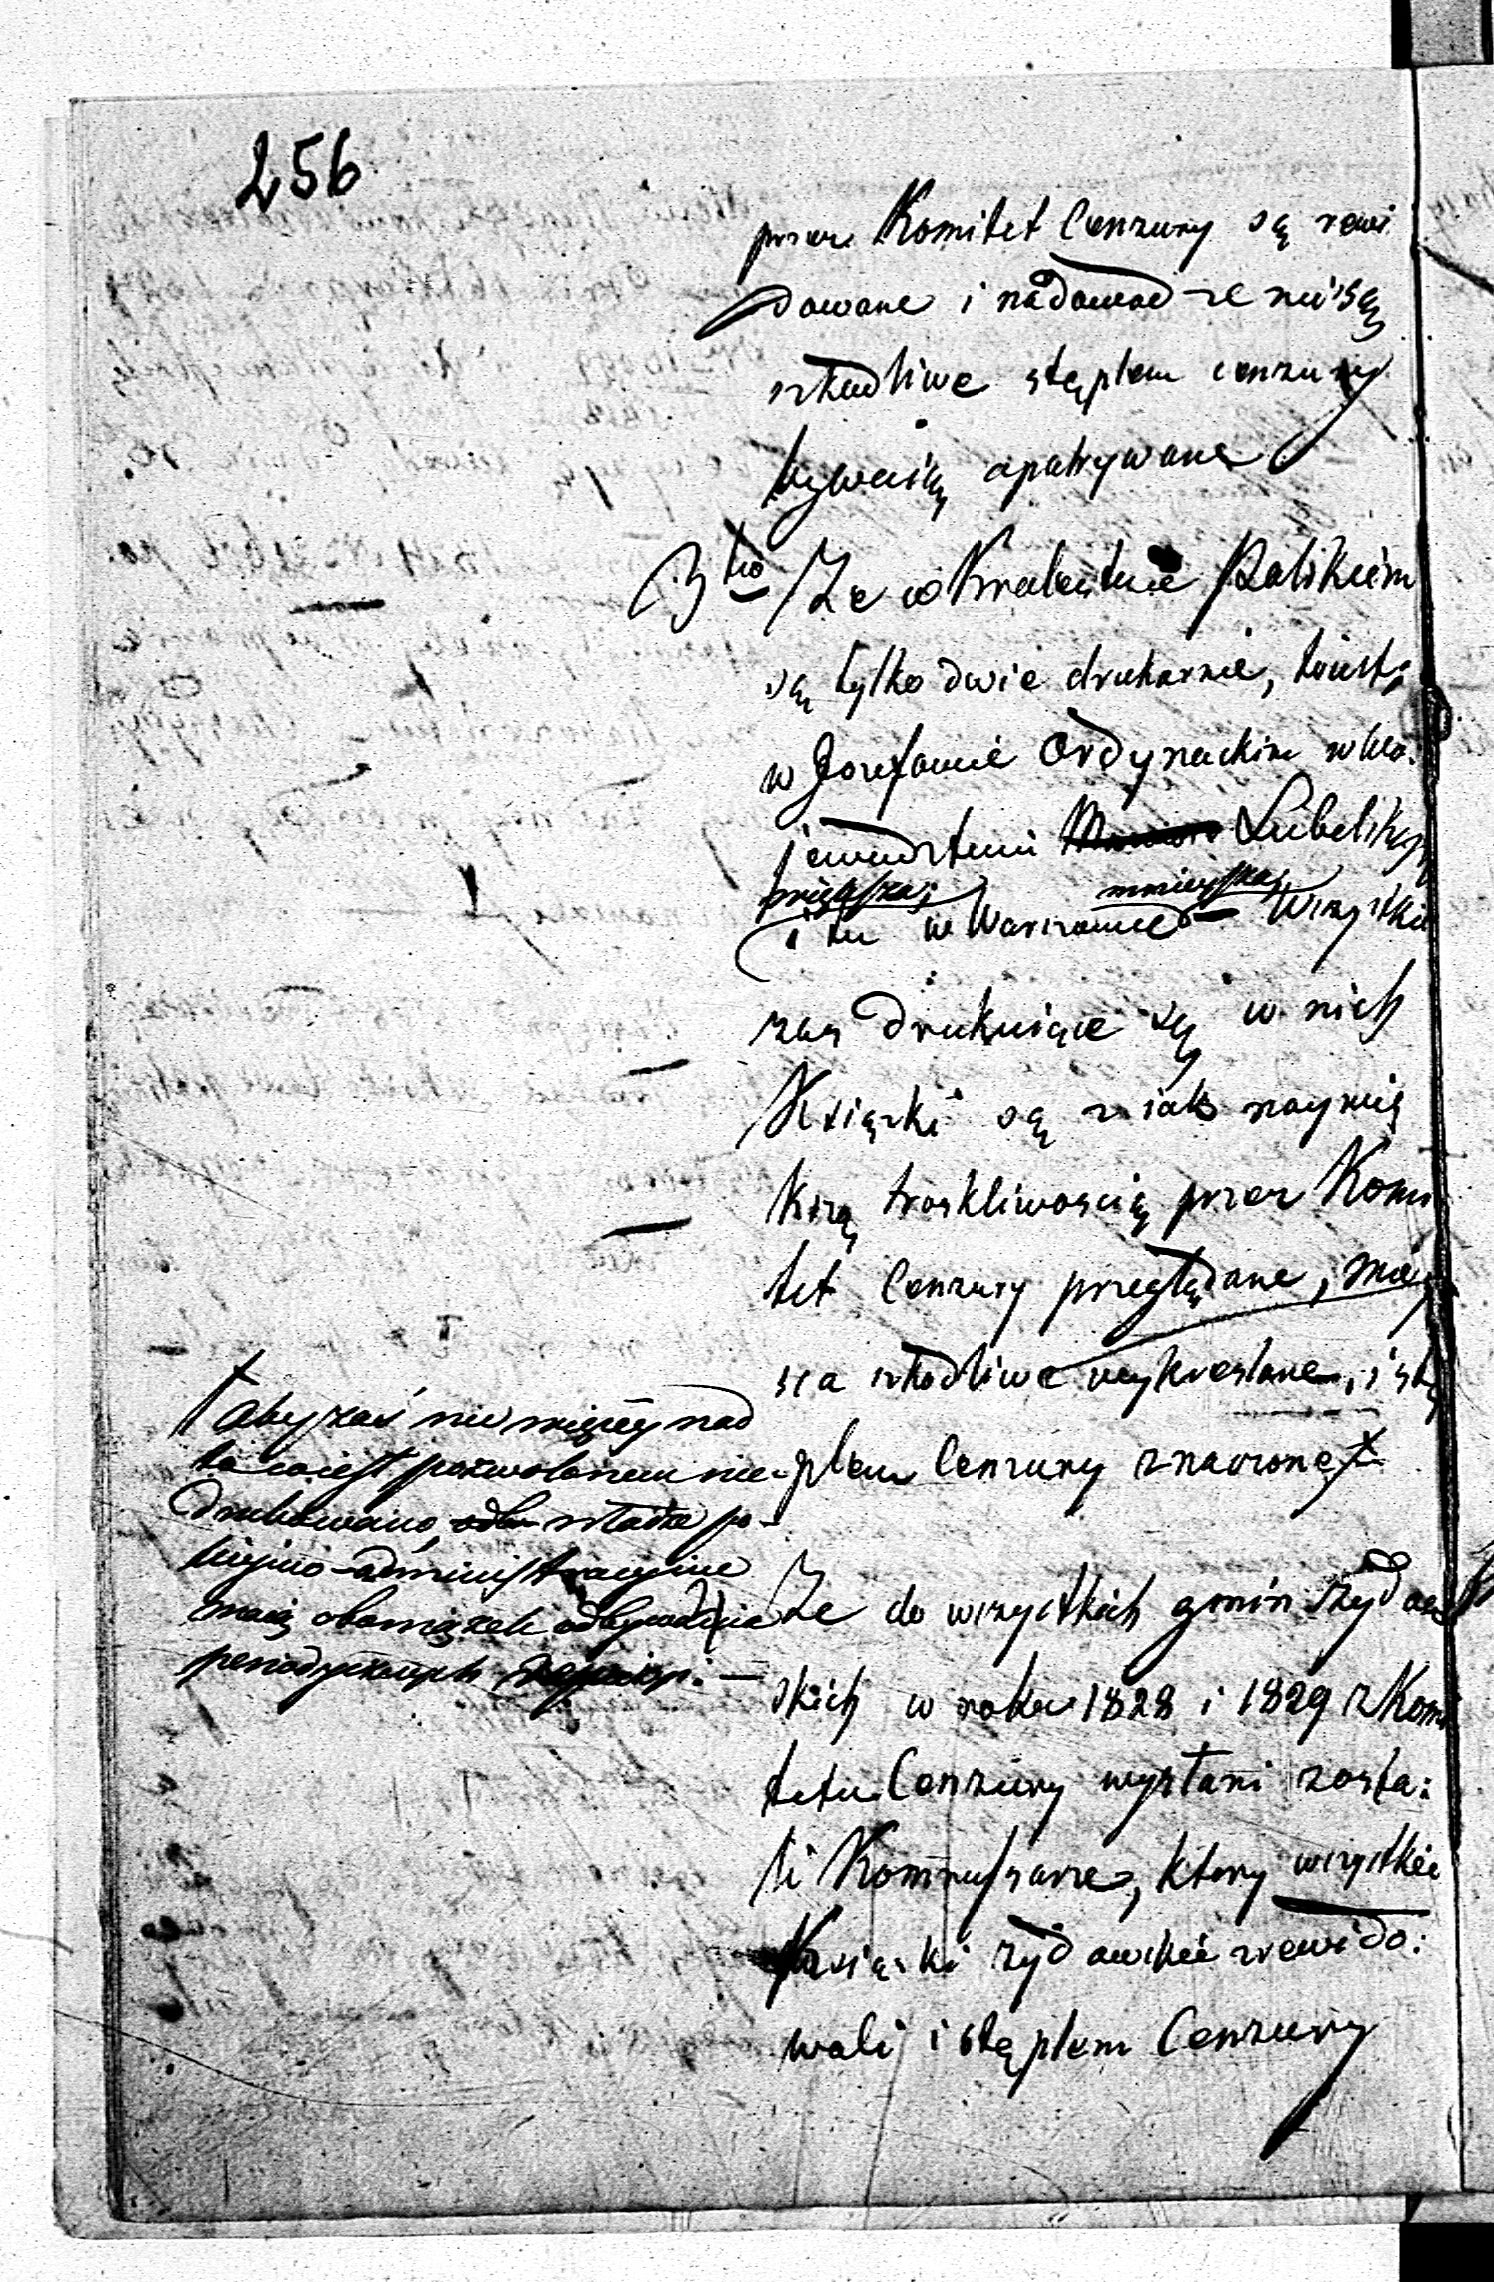 256
przez Komitet Cenzury są rewi
dowane i na dowod że nie są
szkodliwe stęplem cenzury
bywaią opatrywane
3tio Że w Krolestwie Polskiem
są tylko dwie drukarnie, to iest:
w Jozefowie Ordynackim w Wo:
jewodztwie Lubelskiem
większa; mnieysza;
i tu w Warszawie – Wszystkie
zas drukuiące się w nich
Książki są z iak naywię
kszą troskliwoscią przez Komi
tet Cenzury przeglądane, miey
sca szkodliwe wykreslane, i stę
plem Cenzury znaczone †
† aby zaś nie więcey nad
to co iest pozwolonem nie
drukowano, władze po-
licyjno-administracyine
maią obowiązek odbywania
periodycznych
Że do wszystkich gmin Żydow
skich w roku 1828 i 1829 z Komi
tetu Cenzury wysłani zosta:
li Kommissarze, ktory wszystkie
Książki żydowskie zrewido:
wali i stęplem Cenzury